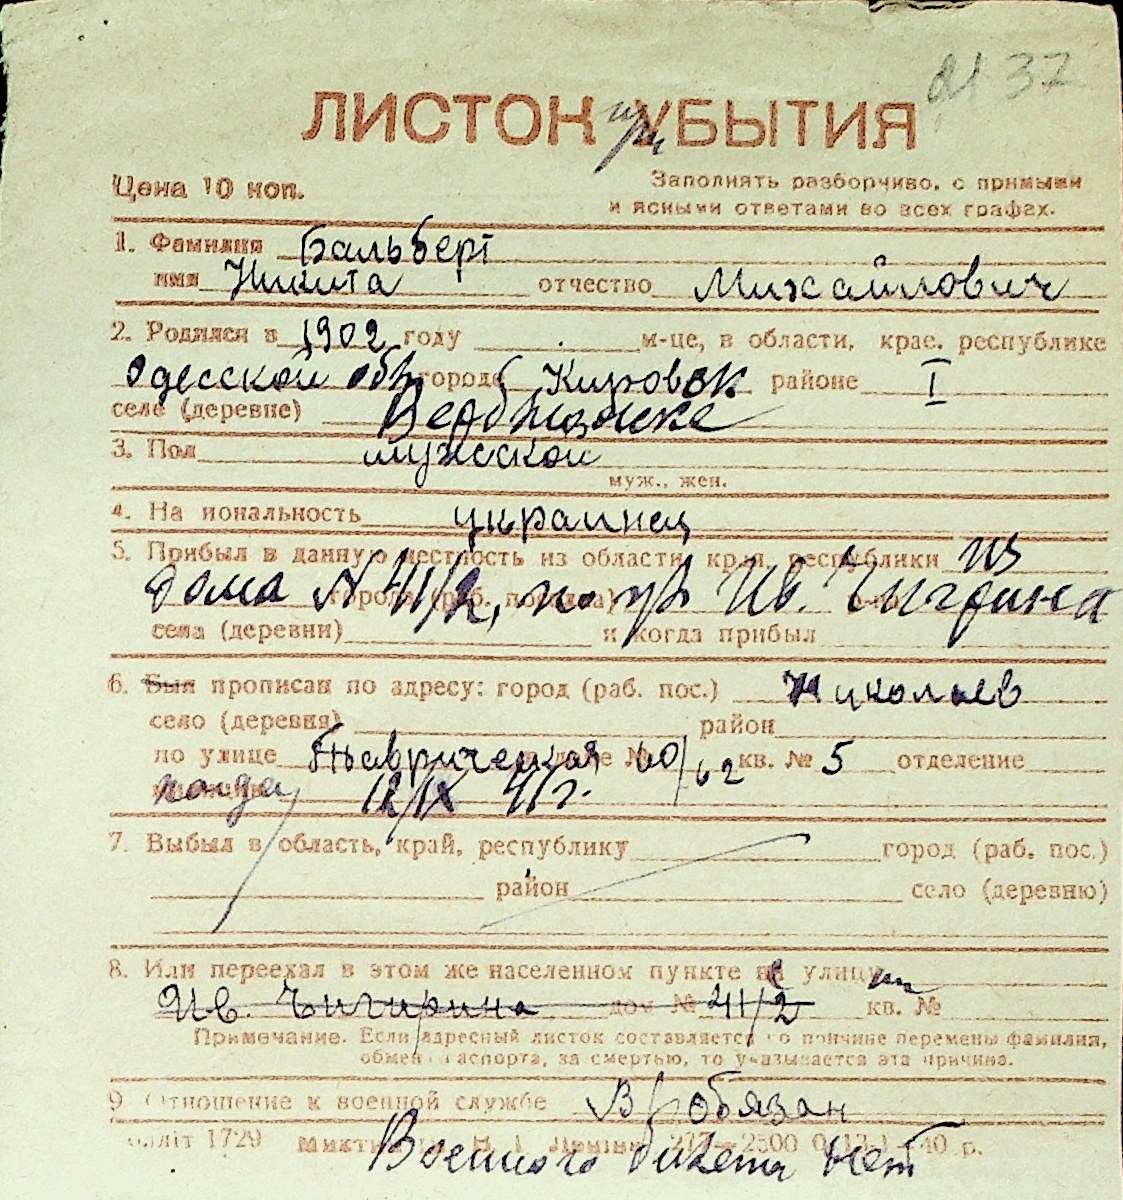 37
ЛИСТОК УБЫТИЯ
Цена 10 коп.
Заполнять разборчиво, с прямыми
и ясными ответами во всех графах.
1. Фамилия Бальберт
имя Никита отчество Михайлович
2. Родился в 1902 году м-це, в области, крае, республике
Одесской обл городе Кировск районе I
селе (деревне)
3. Пол мужской
муж., жен.
4. На иональность украинец
5. Прибыл в данную местность из области, края, республики из
дома № 41/2, по ул Ив. Чигрина
села (деревни) и когда прибыл
6. Был прописан по адресу: город (раб. пос.) Николаев
село (деревня) район
по улице Таврическая в доме № 60/62 кв. № 5 отделение
12/IX 41 г.
7. Выбыл в область, край, республику город (раб. пос.)
район село (деревню)
8. Или переехал в этом же населенном пункте на улицу
Ив. Чигирина дом № 41/2 кв. №
Примечание. Если адресный листок составляется по причине перемены фамилия,
обмен паспорта, за смертью, то указывается эта причина.
9. Отношение к военной службе В/обязан
1729 2500 40 р.
Военного билета нет